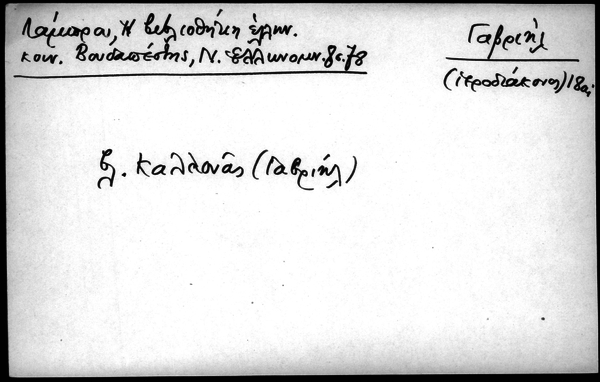 Λάμπρου, Ἡ βιβλιοθήκη ἑλλην.
κοιν. Βουδαπέστης, Ν. Ἑλληνομν. 8ος. 78
Γαβριήλ
(ἱεροδιάκονος) 18 αἰ
βλ. Καλλονᾶς (Γαβριήλ)